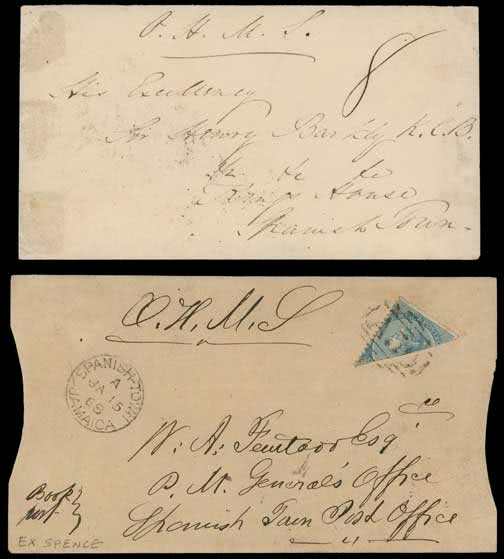 O. H. M. S.
8
His Excellency
Sir Henry Barkly K.C.B.
&c &c &c
King's House
Spanish Town.
O. H. M. S
SPANISH-TOWN
A
JA 15
68
JAMAICA
W. A. Esqr
P. M. General's Office
Spanish Town Post Office
Book
post
EX SPENCE